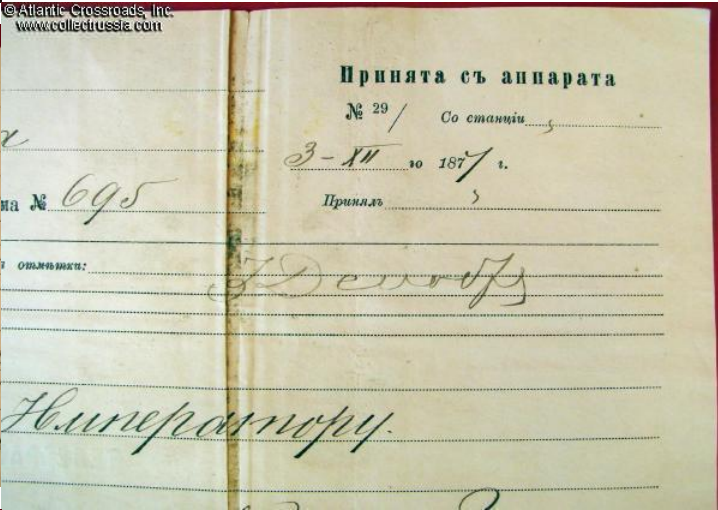 ©Atlantic Crossroads, Inc.
www.collectrussia.com
Принята съ аппарата
№ 29/ Со станціи
3-XII го 1877 г.
ма № 695
Принялъ
отмѣтки:
Императору.